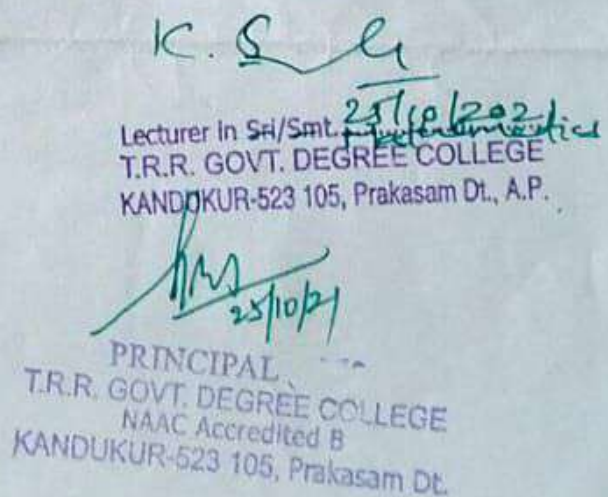 K. S
25/10/2021
Lecturer in Sri/Smt. Mathematics
T.R.R. GOVT. DEGREE COLLEGE
KANDUKUR-523 105, Prakasam Dt., A.P.
25/10/21
PRINCIPAL
T.R.R. GOVT. DEGREE COLLEGE
NAAC Accredited B
KANDUKUR-523 105, Prakasam Dt.